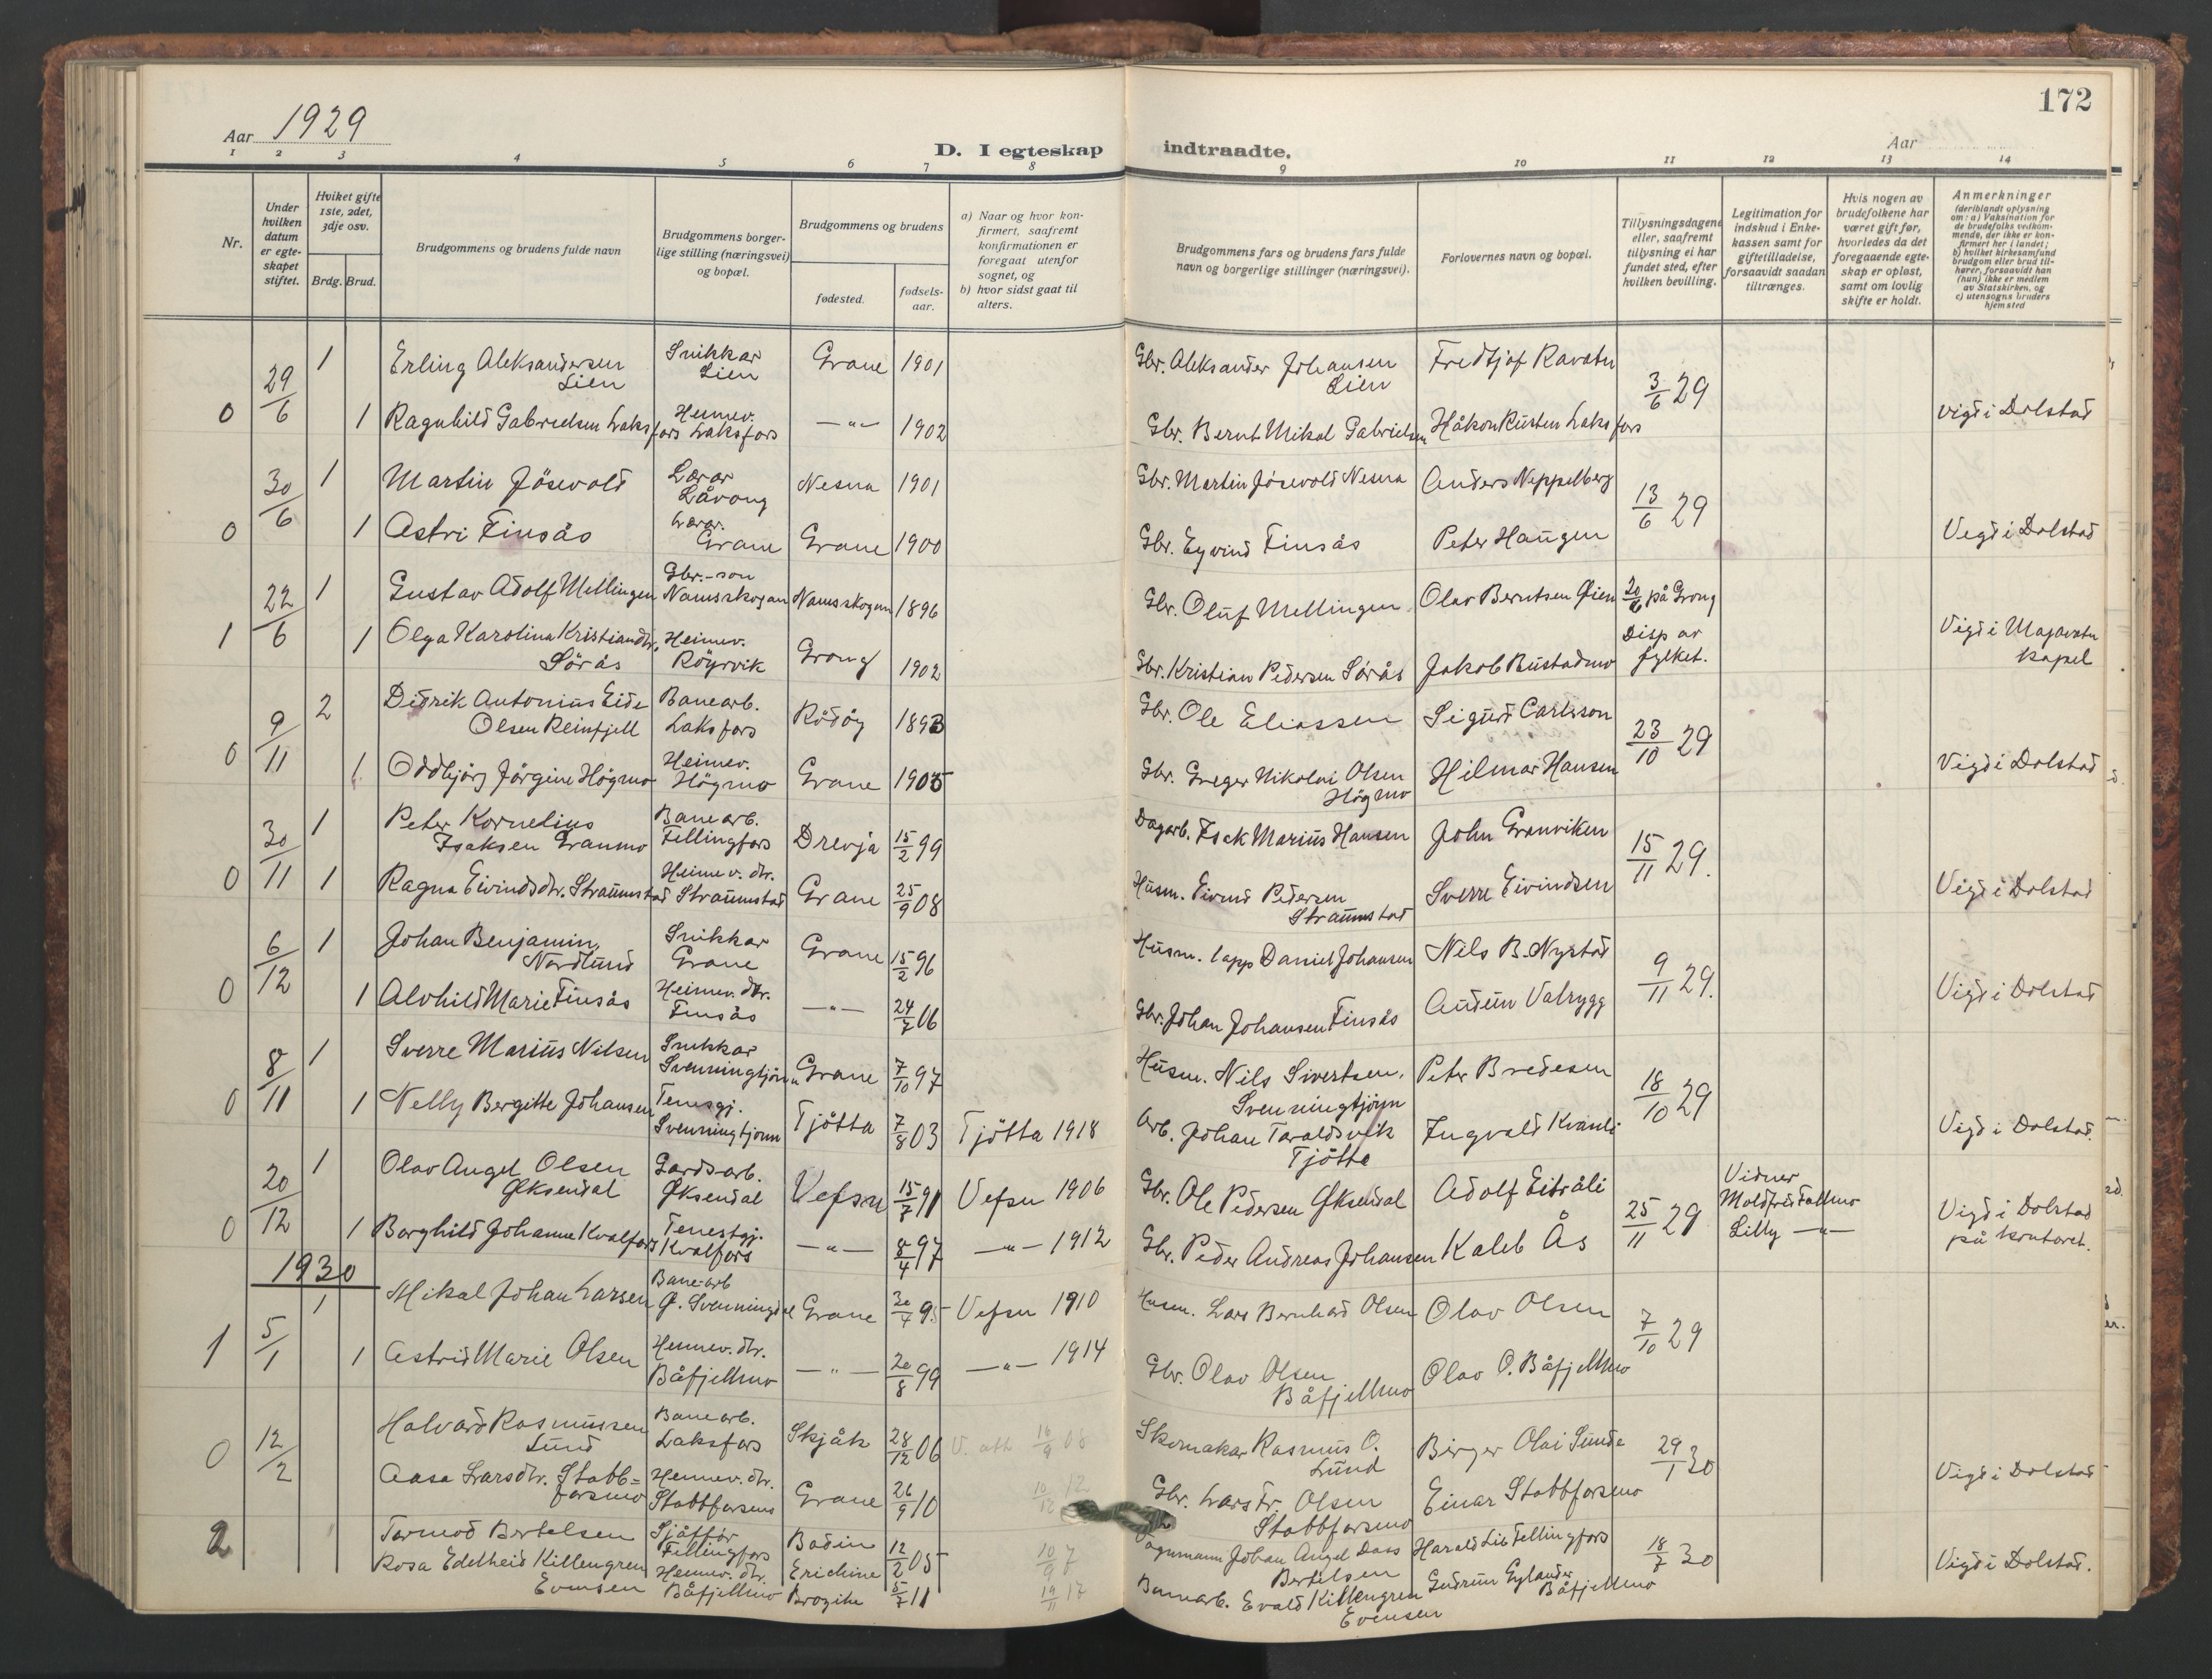 172
Aar 1929
D. I egteskap indtraadte.
Aar
1 2 3 4 5 6 7 8 9 10 11 12 13 14
Nr.
Under hvilken datum er egte-skapet stiftet.
Hviket gifte 1ste, 2det, 3dje osv.
Brdg. Brud.
Brudgommens og brudens fulde navn
Brudgommens borger-lige stilling (næringsvei) og bopæl.
Brudgommens og brudens
fødested.
fødsels-aar.
a) Naar og hvor kon-firmert, saafremt konfirmationen er foregaat utenfor sognet, og
b) hvor sidst gaat til alters.
Brudgommens fars og brudens fars fulde navn og borgerlige stillinger (næringsvei).
Forlovernes navn og bopæl.
Tillysningsdagene eller, saafremt tillysning ei har fundet sted, efter hvilken bevilling.
Legitimation for indskud i Enke-kassen samt for giftetilladelse, forsaavidt saadan tiltrænges.
Hvis nogen av brudefolkene har været gift før, hvorledes da det foregaaende egte-skap er opløst, samt om lovlig skifte er holdt.
Anmerkninger
(deriblandt oplysning om: a) Vaksination for de brudefolks vedkom-mende, der ikke er kon-firmert her i landet; b) hvilket kirkesamfund brudgom eller brud til-hører, forsaavidt han (hun) ikke er medlem av Statskirken, og c) utensogns bruders hjemsted
29/6 1 Erling Aleksandersen Lien Snikkar Lien Grane 1901 Gbr. Aleksander Johansen Lien Fredtjof Ravatn 3/6 29
0 1 Ragnhild Gabrielsen Laksfors Heimev. Laksfors —"— 1902 Gbr. Bernt Mikal Gabrielsen Håkon Rusten Laksfors vigd i Dolstad
30/6 1 Martin Jösevold Lærar Låvong Nesna 1901 Gbr. Martin Jösevold Nesna Anders Neppelberg 13/6 29
0 1 Astri Finsås Lærar. Grane Grane 1900 Gbr. Eyvind Finsås Peter Haugen Vigd i Dolstad
22/6 1 Gustav Adolf Mellingen Gbr.-son Namsskogan Namsskogan 1896 Gbr. Oluf Mellingen Olav Berntsen Öien 20/6 på Grong
1 1 Olga Karolina Kristiandtr. Sörås Heimev. Röyrvik Grong 1902 Gbr. Kristian Pedersen Sörås Jakob Bustadmo Disp av fylket. Vigd i Majavatn kapel
9/11 2 Didrik Antonius Eide Olsen Reinfjell Banearb. Laksfors Rödöy 1893 Gbr. Ole Eliassen Sigurd Carlsson 23/10 29
0 1 Oddbjörg Jörgine Högmo Heimev. Högmo Grane 1905 Gbr. Greger Nikolai Olsen Högmo Hilmar Hansen Vigd i Dolstad
30/11 1 Peter Kornelius Isaksen Granmo Banearb. Fellingfors Drevja 15/2 99 Dagarb. Isak Marius Hansen John Granviken 15/11 29.
0 1 Ragna Eivindsdtr. Straumstad Heimev. dtr. Straumstad Grane 25/9 08 Husm. Eivind Pedersen Straumstad Sverre Eivindsen Vigd i Dolstad
6/12 1 Johan Benjamin Nordlund Snikkar Grane Grane 15/2 96 Husm. lapp Daniel Johansen Nils B. Nystad 9/11 29.
0 1 Alvhild Marie Finsås Heimev. dtr. Finsås —"— 24/7 06 Gbr. Johan Johansen Finsås Audun Valrygg Vigd i Dolstad
8/11 1 Sverre Marius Nilsen Snikkar Svenningtjönn Grane 7/10 97 Husm. Nils Sivertsen, Svenningtjönn Peter Bredesen 18/10 29
0 1 Nelly Bergitte Johansen Tenesgj. Svenningtjönn Tjötta 7/8 03 Tjötta 1918 Arb. Johan Taraldsvik Tjötta Ingvald Kvanli Vigd i Dolstad.
20/12 1 Olav Angel Olsen Öksendal Gardsarb. Öksendal Vefsn 15/7 91 Vefsn 1906 Gbr. Ole Pedersen Öksendal Adolf Eiteråli 25/11 29 Vidner Moldfrid Fallmo
0 1 Borghild Johanne Kvalfors Tenestgj. Kvalfors —"— 8/4 97 —"— 1912 Gbr. Peder Andreas Johansen Kaleb Ås Lilly —"— Vigd i Dolstad på kontoret.
1930
5/1 1 Mikal Johan Larsen Banearb Ö. Svenningdal Grane 30/4 95 Vefsn 1910 Husm. Lars Bernhard Olsen Olav Olsen 7/10 29
1 1 Astrid Marie Olsen Heimev. dtr. Båfjellmo —"— 20/8 99 —"— 1914 Gbr. Olav Olsen Båfjellmo Olav O. Båfjellmo
0 12/2 Halvard Rasmussen Lund Banearb. Laksfors Skjåk 28/12 06 16/9 08 Skomakar Rasmus O. Lund Birger Olai Sunde 29/1 30
Aasa Larsdtr. Stabb=forsmo Heimev. dtr. Stabbforsmo Grane 26/9 10 10/12 12 Gbr. Lars Fr. Olsen Stabbforsmo Einar Stabbforsmo Vigd i Dolstad
2 Tormod Bertelsen Sjåffør Fellingfors Bodin 12/2 05 10/9 7 Johan Angel Dass Bertelsen Harald Lie Fellingfors 18/7 30
Rosa Edelheid Killengren Evensen Heimev. dtr. Båfjellmo 5/7 11 19/11 17 Banearb. Evald Killengren Evensen Gudrun Gylander Båfjellmo Vigd i Dolstad.